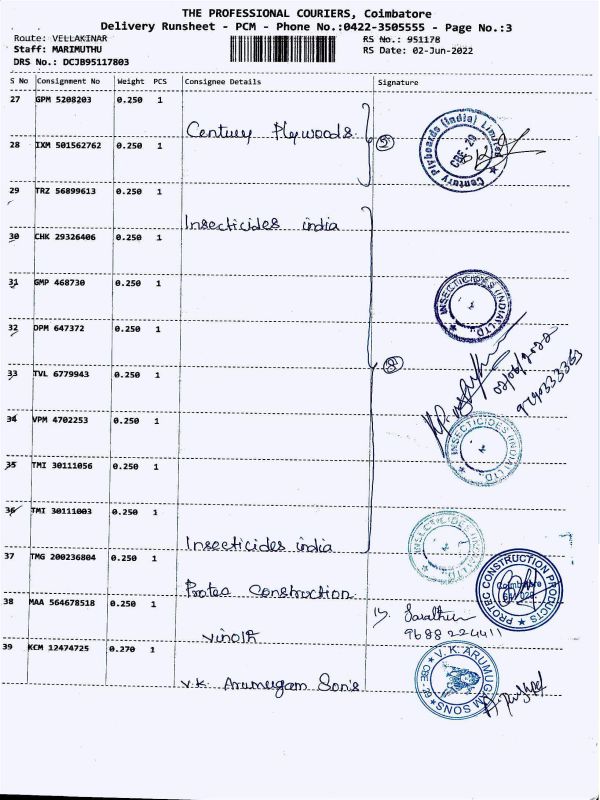 THE PROFESSIONAL COURIERS, Coimbatore
Delivery Runsheet - PCM - Phone No.:0422-3505555 - Page No.:3
Route: VELLAKINAR
RS No.: 951178
Staff: MARIMUTHU
RS Date: 02-Jun-2022
DRS No.: DCJB95117803
S No Consignment No Weight PCS Consignee Details Signature
27 GPM 5208203 0.250 1
Century Plywoods
Century Plyboards (India) Limited
CBE 29
28 IXM 501562762 0.250 1
29 TRZ 56899613 0.250 1
Insecticides india
30 CHK 29326406 0.250 1
31 GMP 468730 0.250 1
INSECTICIDES (INDIA) LTD.
32 DPM 647372 0.250 1
02/06/2022
33 TVL 6779943 0.250 1
34 VPM 4702253 0.250 1
INSECTICIDES (INDIA) LTD.
35 TMI 30111056 0.250 1
36 TMI 30111003 0.250 1
Insecticides india
INSECTICIDES (INDIA) LTD.
37 TMG 200236804 0.250 1
Protec Construction
PROTEC CONSTRUCTION PRODUCTS
Coimbatore
38 MAA 564678518 0.250 1
Vinoth
9688224411
39 KCM 12474725 0.270 1
V.K. Arumugam Son's
V.K. ARUMUGAM SONS
CBE - 29